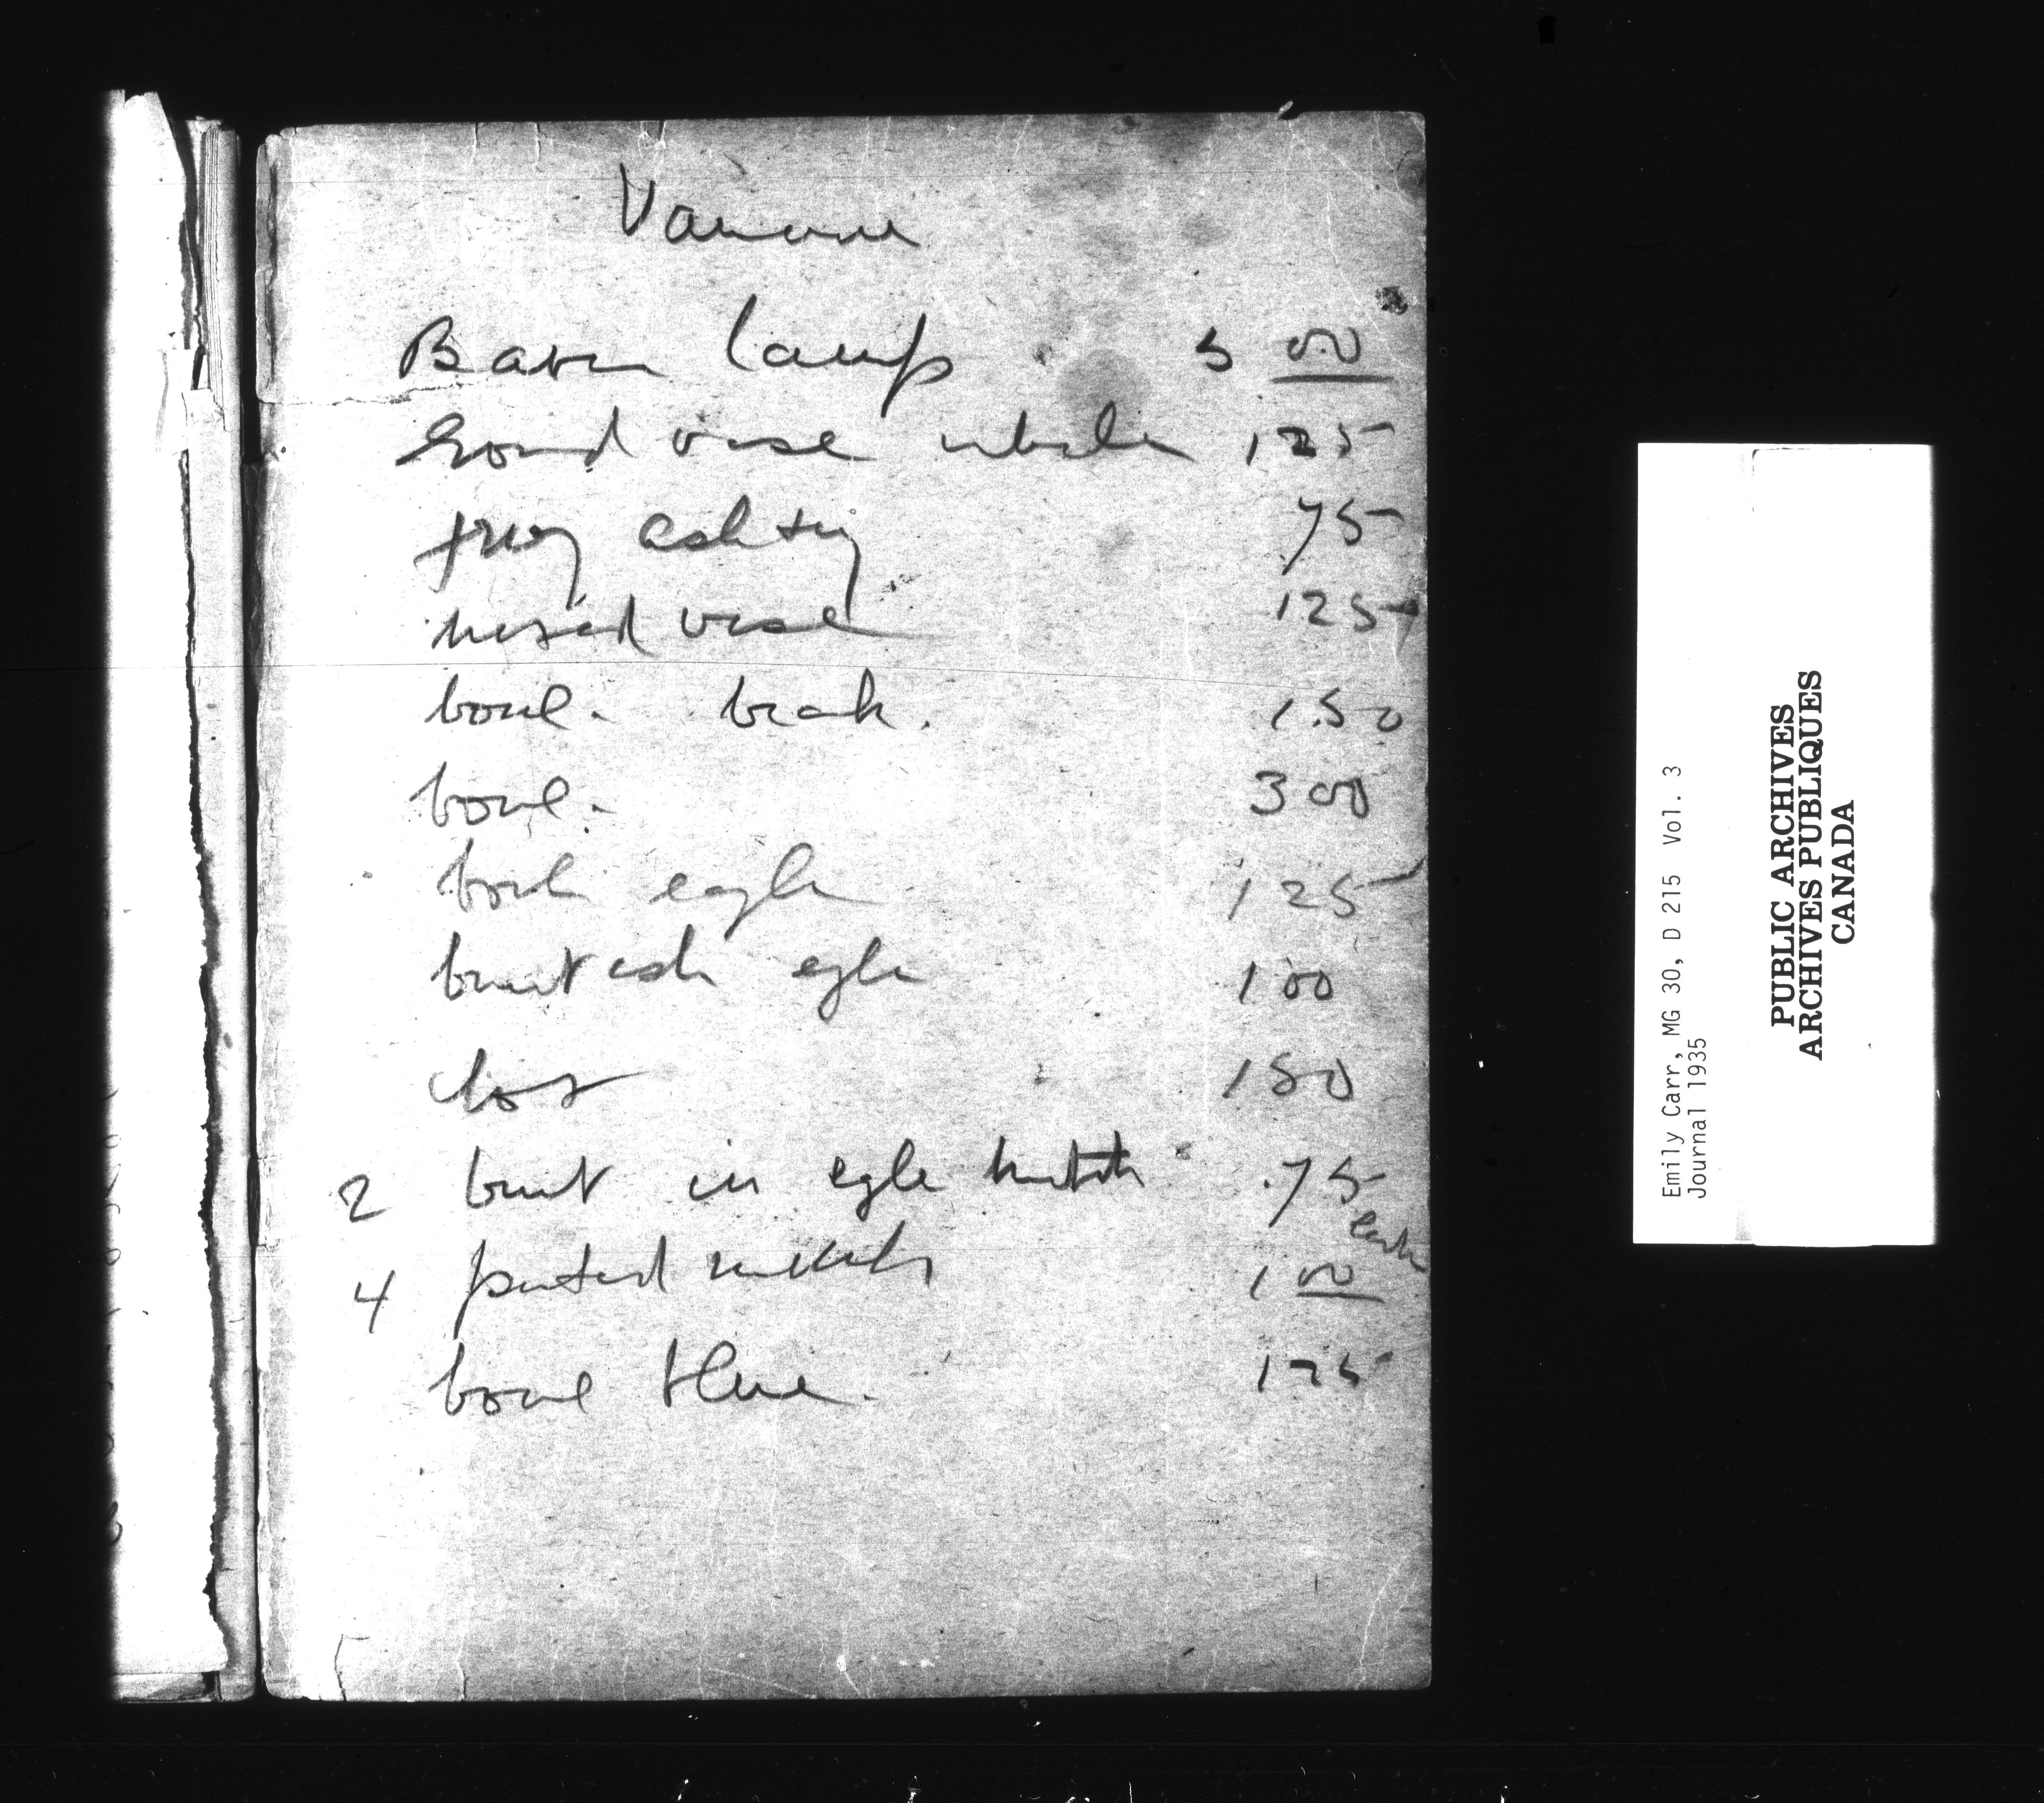 lamp 5 00
round vase whale 125
frog ashtry 75
vase 125
bowl. beak. 1.50
bowl. 300
bowl eagle 125
burnt ash egle 100
box 150
2 burnt in egle .75 each
4 1 00
bowl blue. 125
Emily Carr, MG 30, D 215 Vol. 3
Journal 1935
PUBLIC ARCHIVES
ARCHIVES PUBLIQUES
CANADA